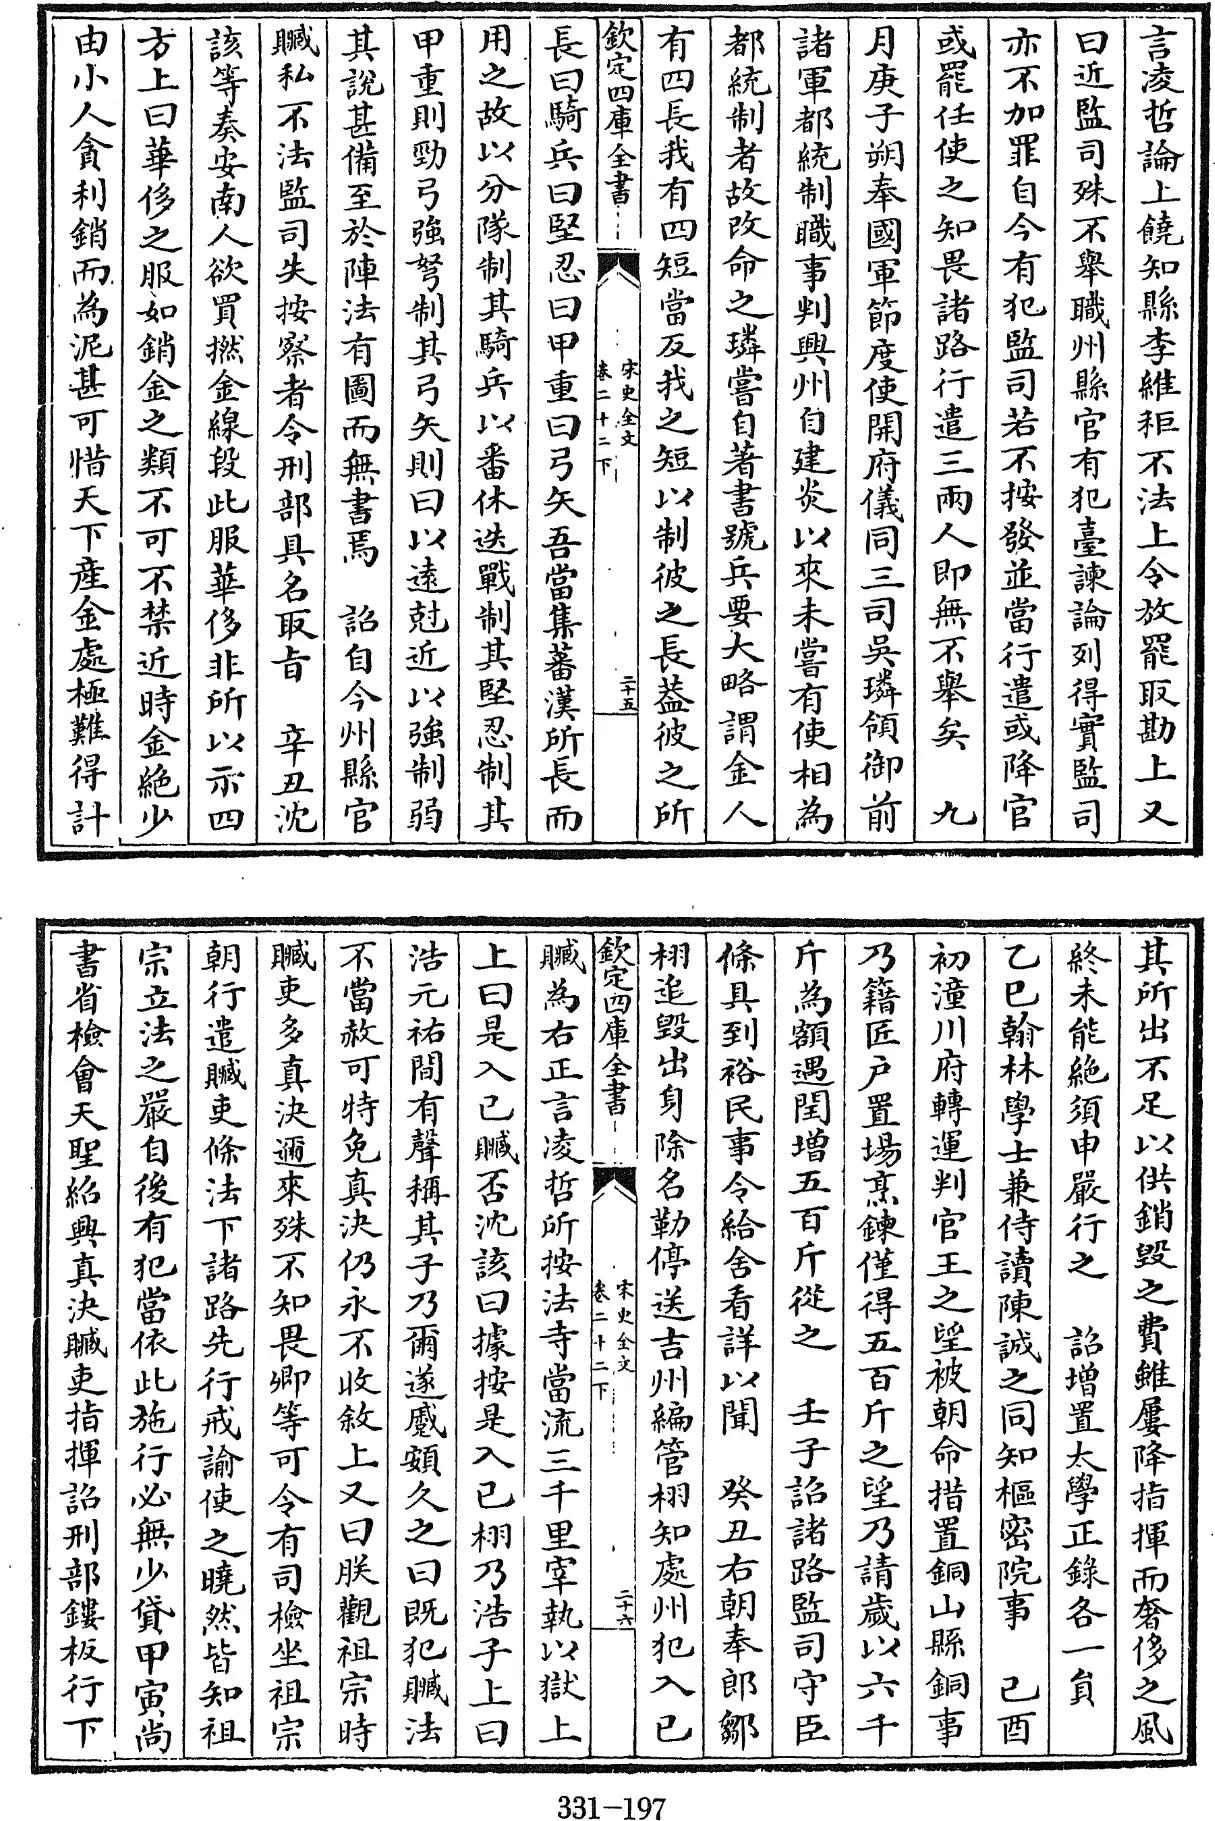 言凌哲論上饒知縣李維秬不法上令放罷取勘上又
曰近監司殊不舉職州縣官有犯臺諫論列得實監司
亦不加罪自今有犯監司若不按發並當行遣或降官
或罷任使之知畏諸路行遣三兩人即無不舉矣　九
月庚子朔奉國軍節度使開府儀同三司吳璘領御前
諸軍都統制職事判興州自建炎以來未嘗有使相為
都統制者故改命之璘嘗自著書號兵要大略謂金人
有四長我有四短當反我之短以制彼之長葢彼之所
欽定四庫全書
宋史全文
卷二十二下
二十五
長曰騎兵曰堅忍曰甲重曰弓矢吾當集蕃漢所長而
用之故以分隊制其騎兵以番休迭戰制其堅忍制其
甲重則勁弓強弩制其弓矢則曰以遠尅近以強制弱
其說甚備至於陣法有圖而無書焉　詔自今州縣官
贓私不法監司失按察者令刑部具名取旨　辛丑沈
該等奏安南人欲買撚金線段此服華侈非所以示四
方上曰華侈之服如銷金之類不可不禁近時金絶少
由小人貪利銷而為泥甚可惜天下産金處極難得計
其所出不足以供銷毀之費雖屢降指揮而奢侈之風
終未能絶須申嚴行之　詔增置太學正錄各一員
乙巳翰林學士兼侍讀陳誠之同知樞密院事　己酉
初潼川府轉運判官王之望被朝命措置銅山縣銅事
乃籍匠户置場烹鍊僅得五百斤之望乃請歲以六千
斤為額遇閏增五百斤從之　壬子詔諸路監司守臣
條具到裕民事令給舍看詳以聞　癸丑右朝奉郎鄒
栩追毀出身除名勒停送吉州編管栩知處州犯入己
欽定四庫全書
宋史全文
卷二十二下
二十六
贓為右正言凌哲所按法寺當流三千里宰執以獄上
上曰是入己贓否沈該曰據按是入己栩乃浩子上曰
浩元祐間有聲稱其子乃爾遂慼頞久之曰既犯贓法
不當赦可特免真決仍永不收敘上又曰朕觀祖宗時
贓吏多真決邇來殊不知畏卿等可令有司檢坐祖宗
朝行遣贓吏條法下諸路先行戒諭使之曉然皆知祖
宗立法之嚴自後有犯當依此施行必無少貸甲寅尚
書省檢會天聖紹興真決贓吏指揮詔刑部鏤板行下
331-197